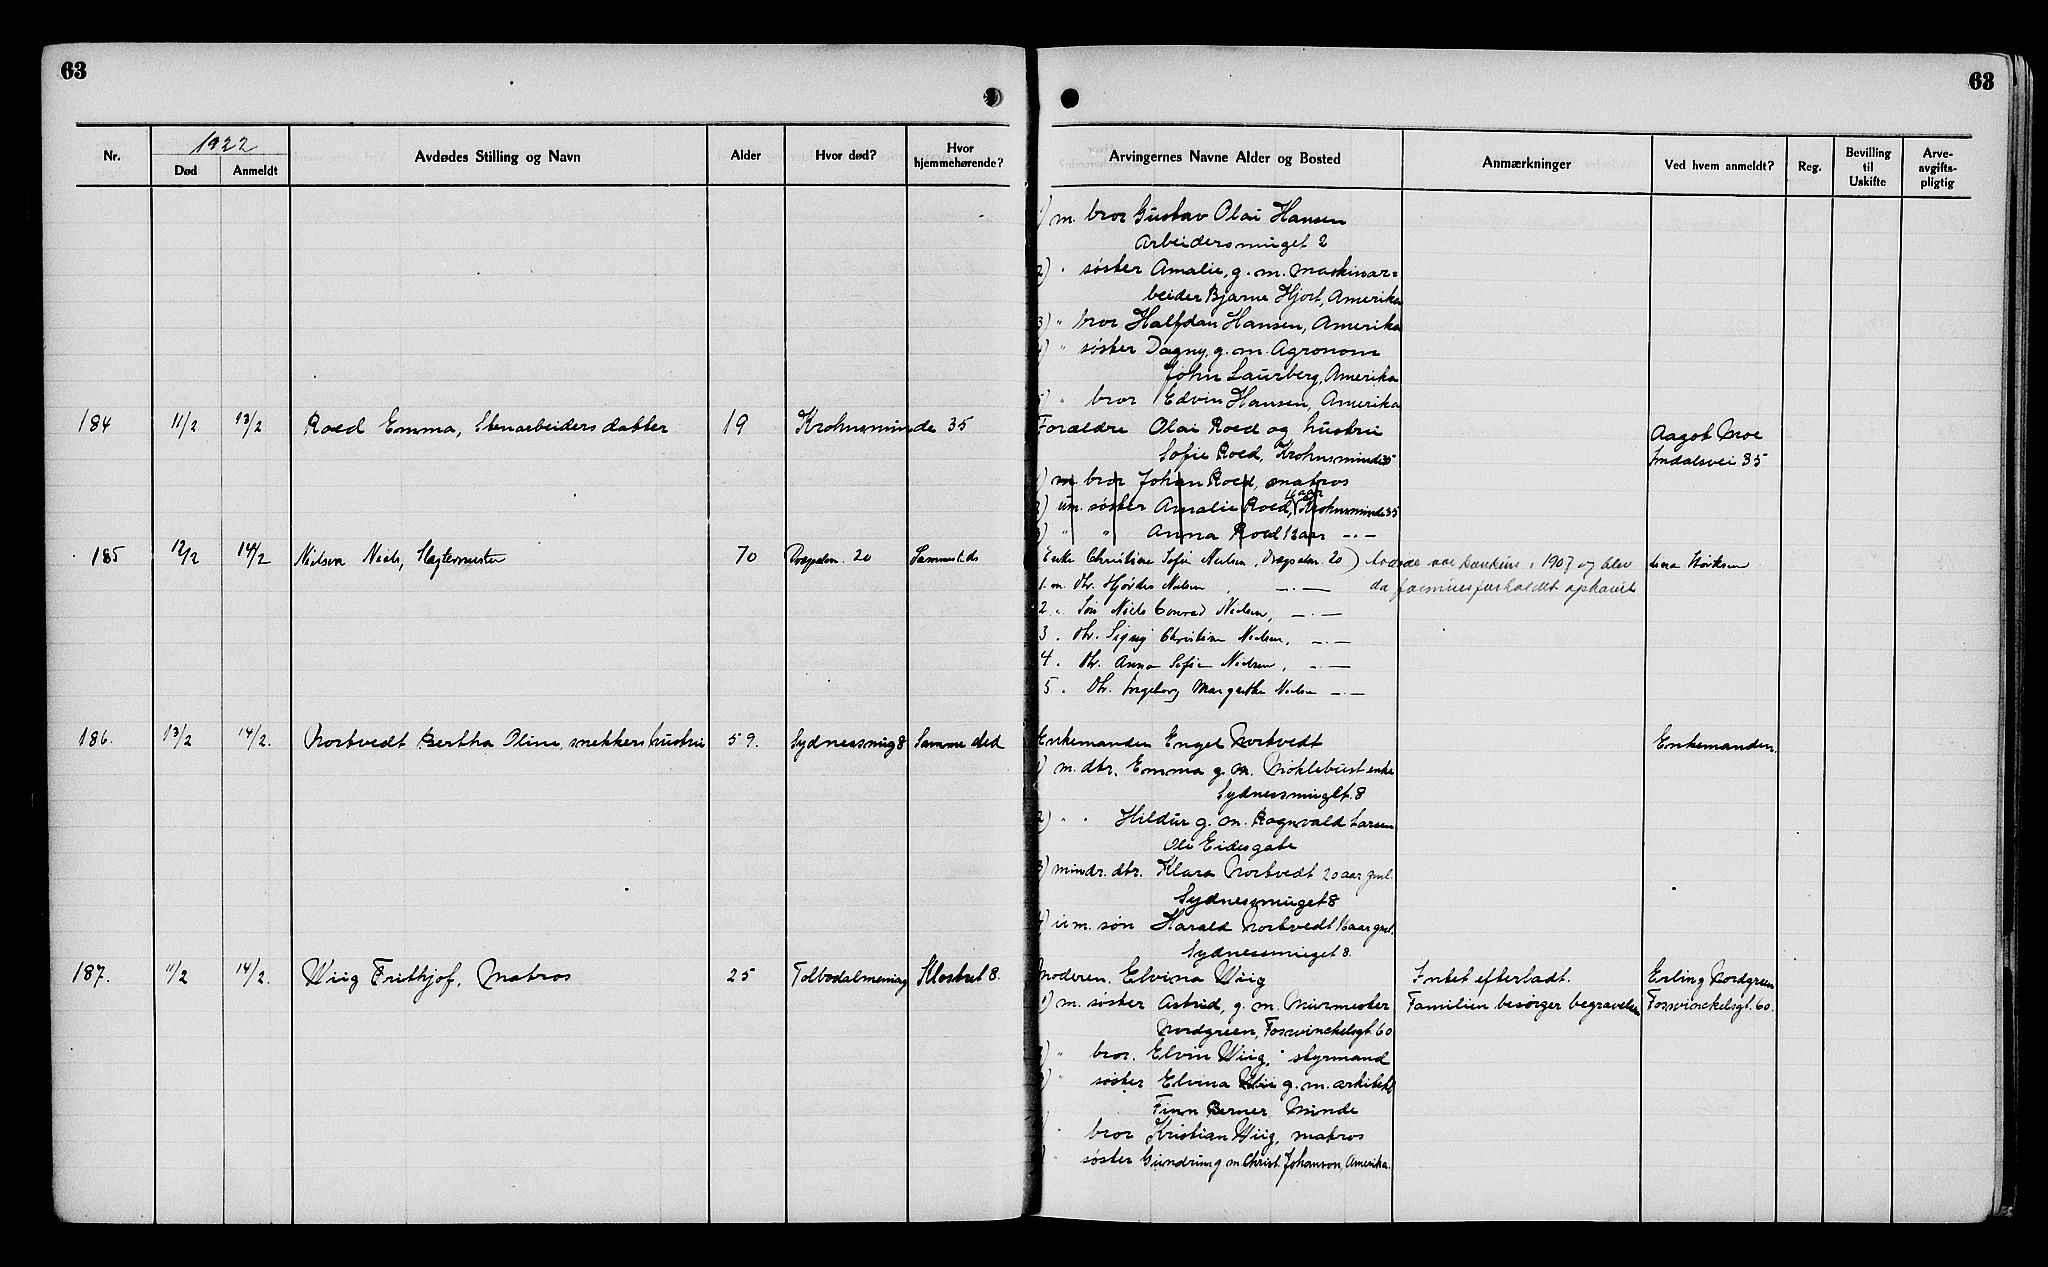 63
63
1922
Nr.
Død
Anmeldt
Avdødes Stilling og Navn
Alder
Hvor død?
Hvor hjemmehørende?
Arvingernes Navne Alder og Bosted
Anmærkninger
Ved hvem anmeldt?
Reg.
Bevilling til Uskifte
Arve-avgifts-pligtig
1) m. bror Gustav Olai Hansen
Arbeidersmuget 2
2) " søster Amalie, g. m. maskinar=
beider Bjarne Hjort, Amerika
3) " bror Halfdan Hansen, Amerika
4) " søster Dagny, g. m. Agronom
John Laurberg, Amerika
5) " bror Edvin Hansen, Amerika
184 11/2 13/2 Roed Emma, Stenarbeiders datter 19 Krohnsminde 35
Forældre Olai Roed og hustru
Sofie Roed, Krohnsminde 35
Aagot Moe
35
1) m bror Johan Roed, matros
2) um. søster Amalie Roed, 16 aar Krohnsminde 35
3) " " Anna Roed 12 aar —"—
185 12/2 14/2 Nielsen Niels, Slagtermester 70 Dragesm. 20 Sammesteds
Enke Christine Sofie Nielsen, Dragesm. 20)
1907 og blev
da formuesforholdet ophævet
1. m. Dtr. Hjørdis Nielsen, —"—
2 " Søn Niels Conrad Nielsen, —"—
3 " Dtr. Signy Christine Nielsen, —"—
4 " Dtr. Anna Sofie Nielsen, —"—
5 " Dtr. Ingeborg Margrethe Nielsen —"—
186. 13/2 14/2. Nortvedt Bertha Oline, snekkers hustru 59. Sydnessmug 8 Samme sted
Enkemanden Engel Nortvedt
Enkemanden.
1) m. dtr. Emma g. m. Moklebust enke
Sydnessmuget. 8
2) " " Hildur g. m. Ragnvald Larsen
Ole Eidesgate
3) mindr. dtr. Klara Nortvedt 20 aar gml.
Sydnessmuget 8
4) um. søn Harald Nortvedt 16 aar gml.
Sydnessmuget 8.
187. 11/2 14/2. Wiig Frithjof, Matros 25 Tolbodalmening Klostret 8.
Moderen, Elvina Wiig
Intet efterladt.
Erling Nordgreen
1) m. søster Astrid, g. m. Murmester
Familien besørger begravelsen
Fosswinckelsgt. 60.
Nordgreen, Fosswinckelsgt. 60
2) " bror. Elvin Wiig, styrmand
3) " søster Elvina g. m. arkitekt
Finn Berner, Minde
" bror Kristian Wiig, matros
" søster Gundrun g m Christ. Johanson, Amerika.